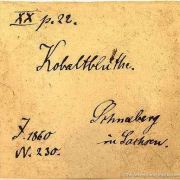 XX p. 22.
Kobaltblüthe.
J. 1860
N. 230.
Schneeberg
in Sachsen.